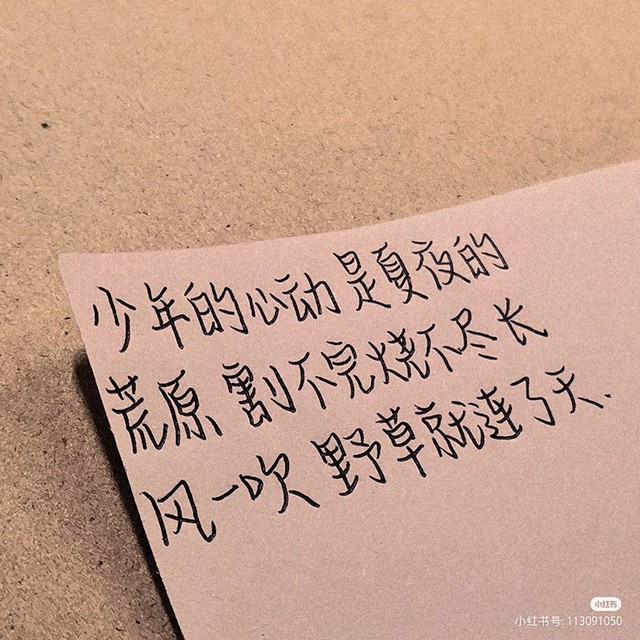 少年的心动是夏夜的
荒原割不完烧不尽长
风一吹野草就连了天.
小红书
小红书号: 113091050